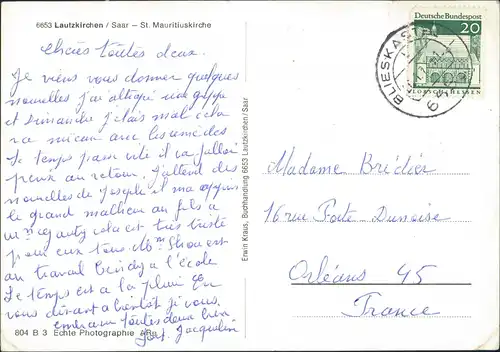 6653 Lautzkirchen / Saar – St. Mauritiuskirche
Chères toutes deux.
Je viens vous donner quelques
nouvelles j'ai attrapé une grippe
et Dimanche j'étais mal cela
va mieux avec les remèdes
le temps passe vite il va falloir
au retour. J'attend des
nouvelles de Joseph il m'a appris
le grand malheur au fils a
cela est très triste
pour eux tous. est
au travail à l'école
Le temps est a la pluie En
vous disant a bientôt je vous
embrasse toutes deux bien
fort. Jacqueline
804 B 3 Echte Photographie
Erwin Kraus, Buchhandlung 6653 Lautzkirchen/Saar
Deutsche Bundespost
20
LORSCH/HESSEN
BLIESKASTEL
Madame Brédier
16 rue Porte Dunoise
Orléans 45
France